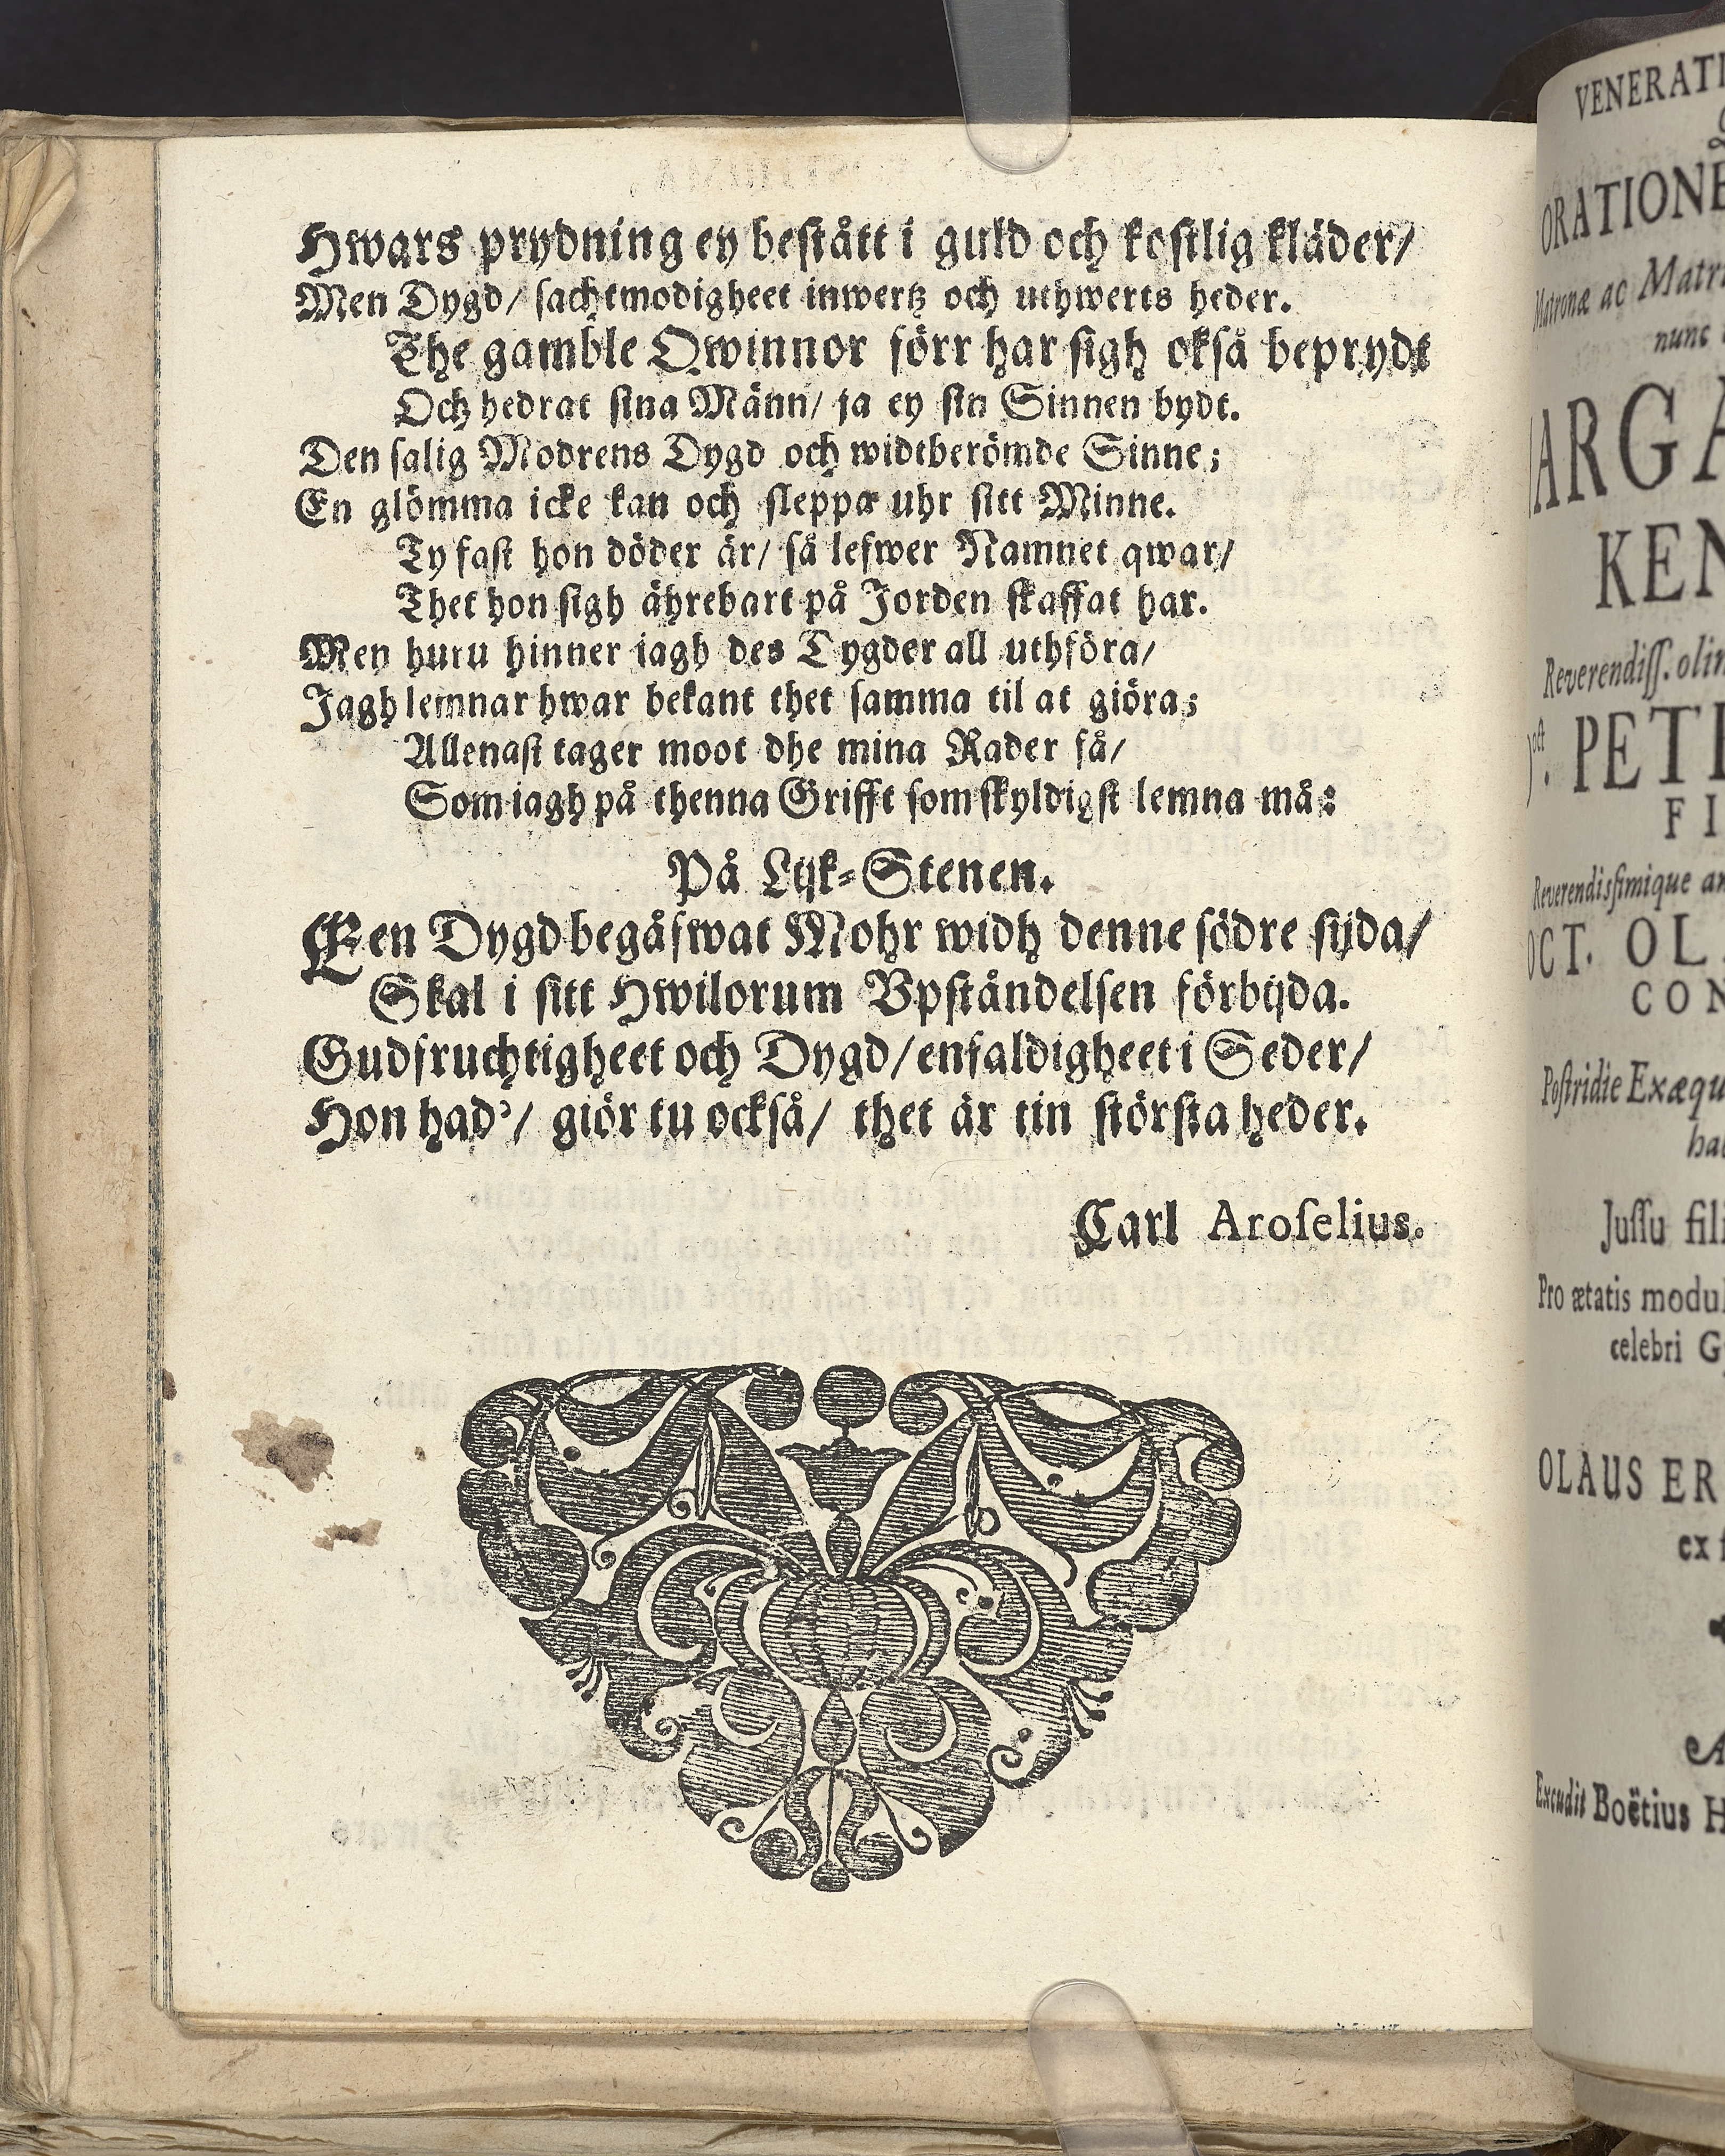 Hwars prydning ey bestått i guld och kostlig kläder/
Men Dygd/ sachtmodigheet inwertz och uthwerts heder.
The gamble Qwinnor förr har sigh okså beprydt
Och hedrat sina Männ/ ja ey sin Sinnen bydt.
Den salig Modrens Dygd och widtberömde Sinne;
En glömma icke kan och sleppa uhr sitt Minne.
Ty fast hon döder är/ så lefwer Namnet qwar/
Thet hon sigh ährebart på Jorden skaffat har.
Men huru hinner iagh des Dygder all uthföra/
Jagh lemnar hwar bekant thet samma til at giöra;
Allenast tager moot dhe mina Rader få/
Som iagh på thenna Grifft som skyldigst lemna må:
På Lijk-Stenen.
Een Dygd begåfwat Mohr widh denne södre sijda/
Skal i sitt Hwilorum Vpståndelsen förbijda.
Gudfruchtigheet och Dygd/ enfaldigheet i Seder/
Hon had'/ giör tu också/ thet är tin största heder.
Carl Aroselius.
VENERATI
ORATIONE
Matronæ ac Matr
nunc
ARGA
KEN
Reverendiss. olim
PET
FI
Reverendissimique
OCT. OL
CON
Postridie Exæqu
Jussu fili
Pro ætatis modul
celebri G
OLAUS ER
ex
Excudit Boëtius H